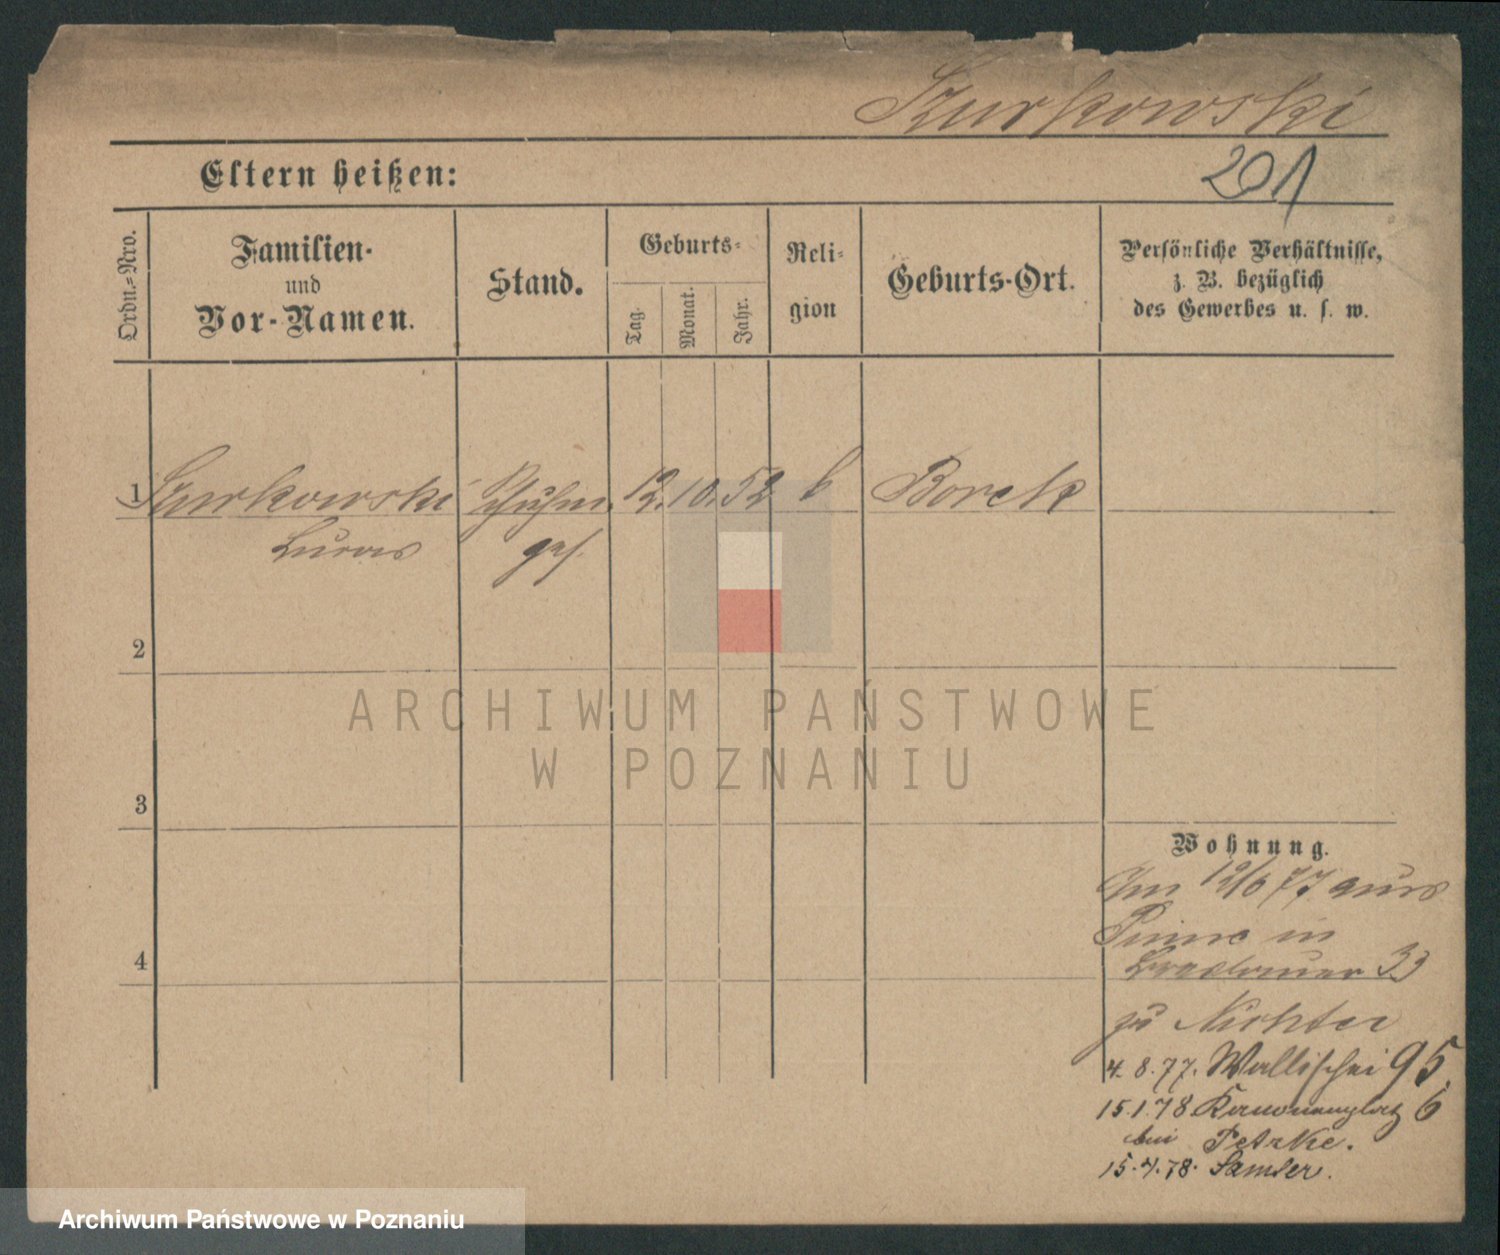 Szurkowski
201
Eltern heißen:
Ordn.=Nro.
Familien- und Vor-Namen.
Stand.
Geburts-
Tag.
Monat.
Jahr.
Reli-
gion
Geburts-Ort.
Persönliche Verhältnisse,
z. B. bezüglich
des Gewerbes u. s. w.
1 Szurkowski Schuhm. 12. 10. 52 k Borek
Lucas ges.
2
ARCHIWUM PAŃSTWOWE
W POZNANIU
3
Wohnung.
Am 12/6 77 aus
Pinne in
4
33
zu Richter
4. 8. 77. Wallischei 95
15.1.78 Kanonenplatz 6
bei Petzke.
15.4.78. Samter.
Archiwum Państwowe w Poznaniu